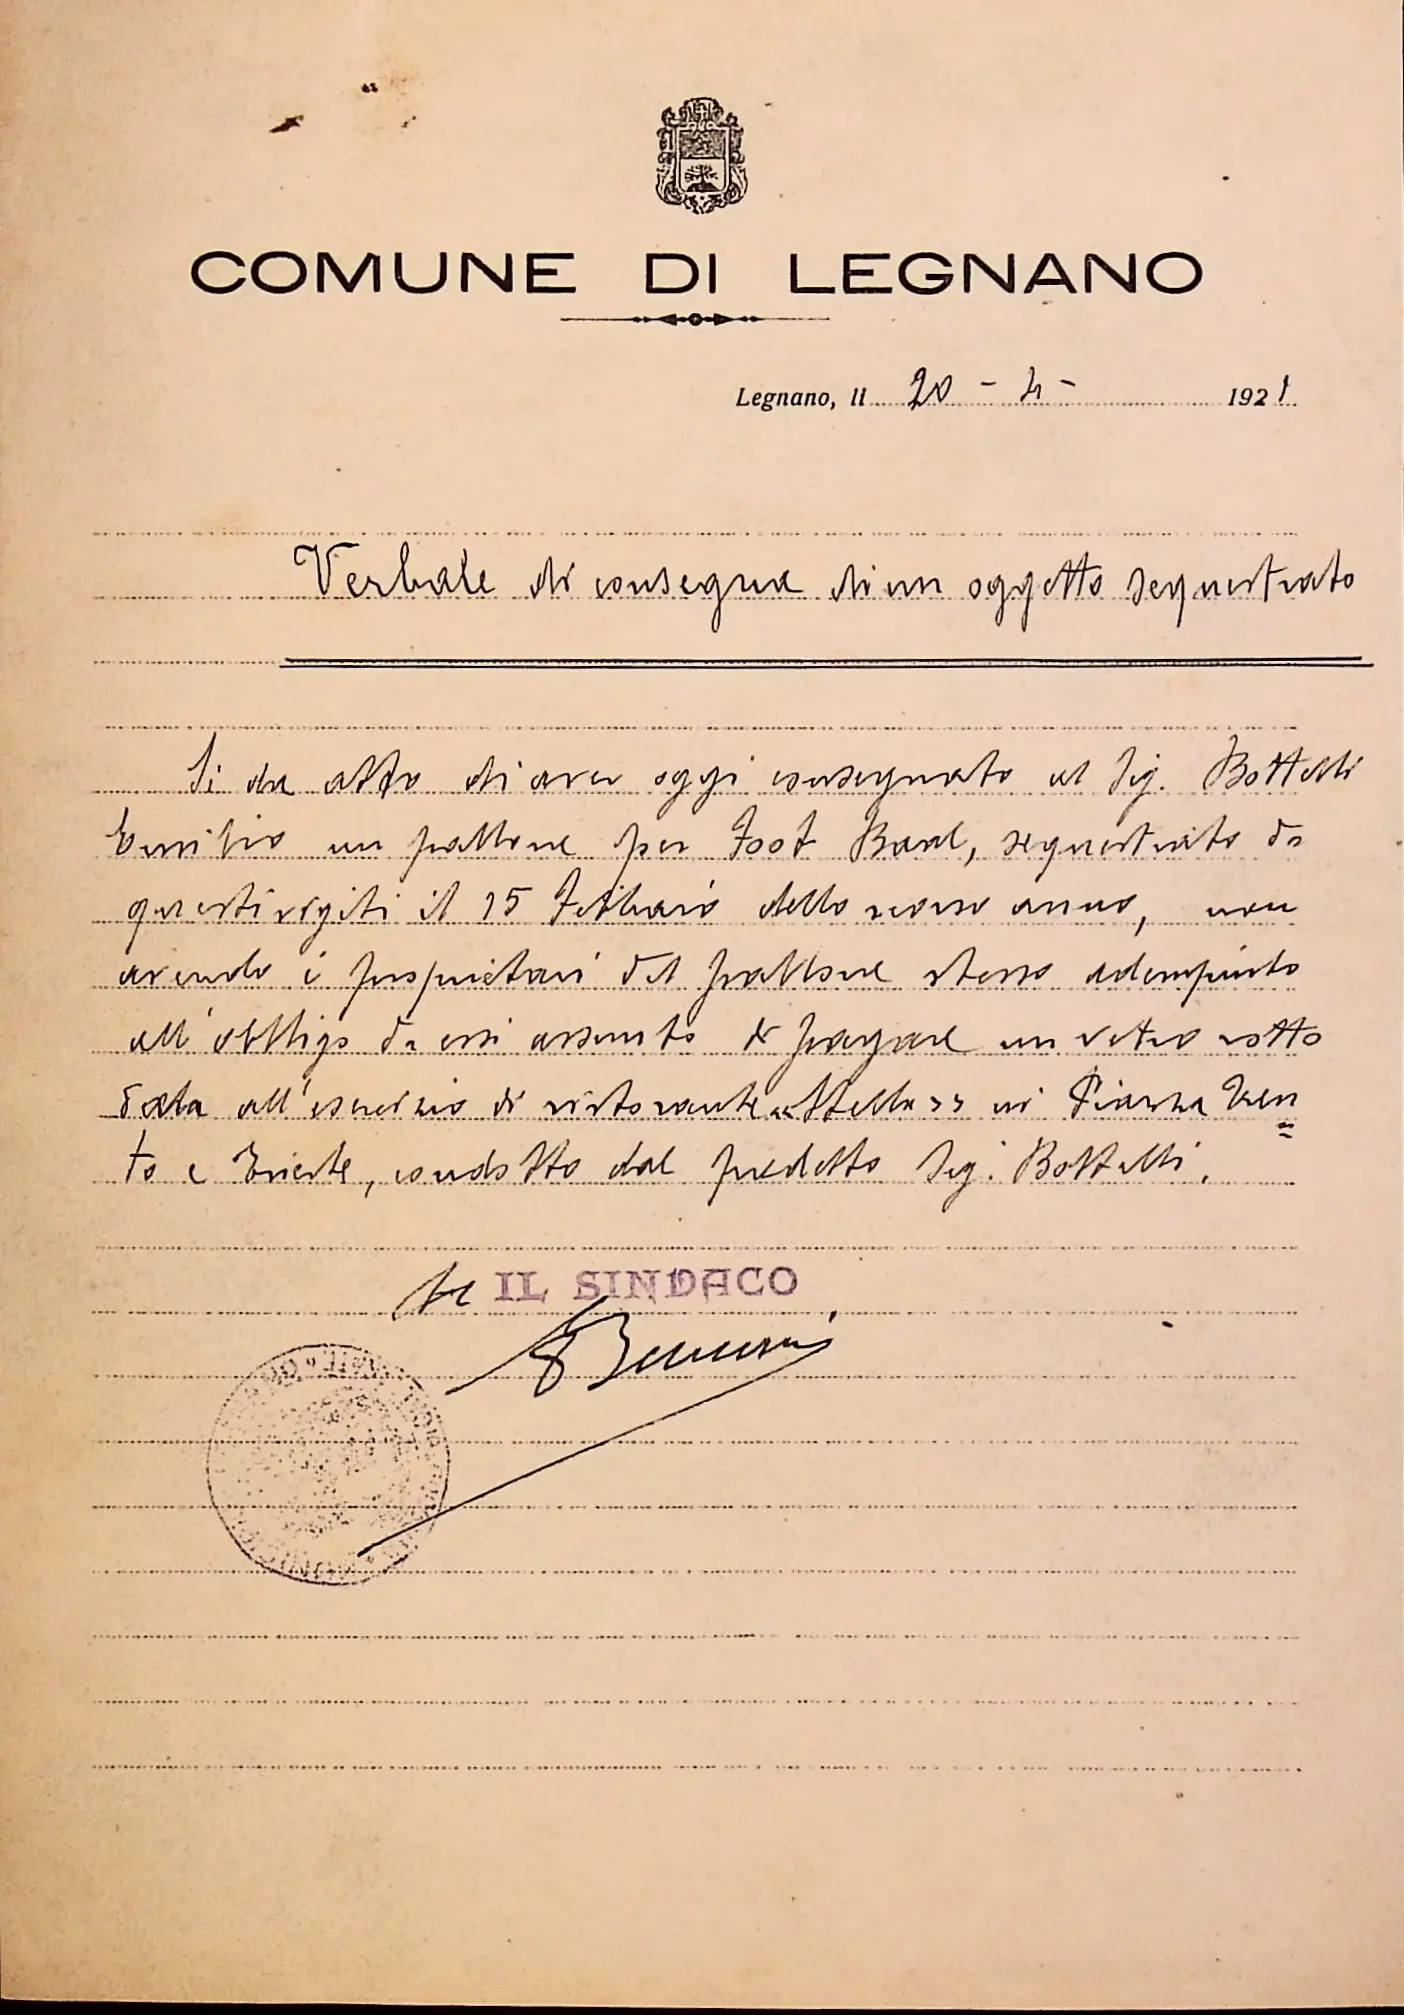 COMUNE DI LEGNANO
Legnano, li 20 - 4 - 1921.
Verbale di consegna di un oggetto sequestrato
Si da atto di aver oggi consegnato al Sig. Bottelli
Emilio un pallone per Foot Baal, sequestrato da
questi vigili il 15 Febbraio dello scorso anno, non
avendo i proprietari del pallone stesso adempiuto
all'obbligo da essi assunto di pagare un vetro rotto
alla all'esercizio di ristorante «Stella» in Piazza Tren
to e Trieste, condotto dal predetto Sig. Bottelli.
IL SINDACO